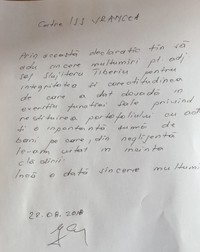 Catre IJJ VRANCEA
Prin această declarație țin să
aduc sincere mulțumiri pt adj
sef Slujitoru Tiberiu pentru
integritatea și corectitudinea
de care a dat dovadă în
exercitiu functiei sale privind
restituirea portofoliului cu act
și o importantă sumă de
bani pe care, din neglijență
l-am uitat în incinta
clădirii.
Încă o dată sincere multum
28.08.2018